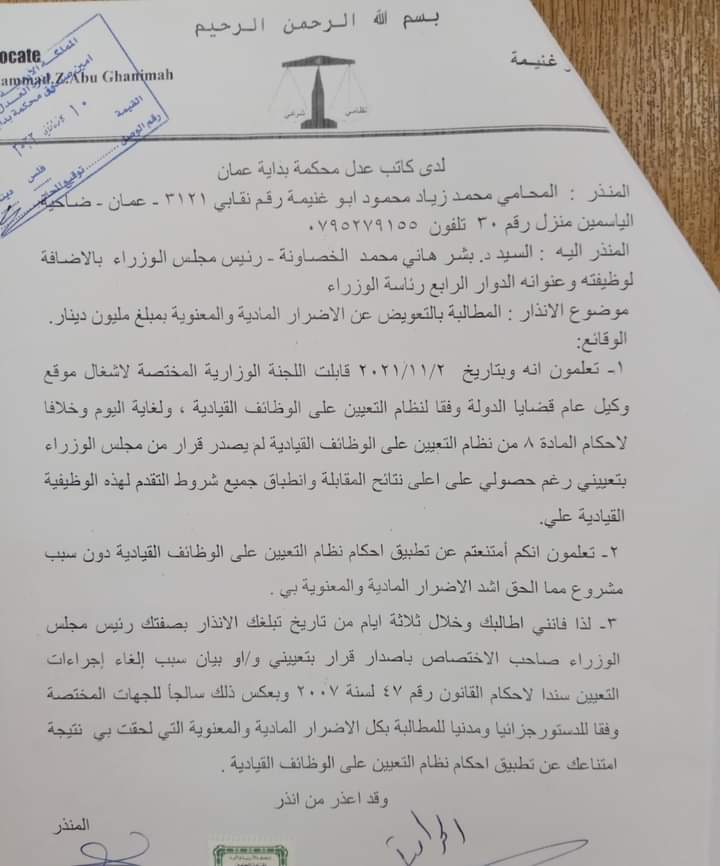 بسم الله الرحمن الرحيم
ocate
ammad.Z.Abu Ghanimah
غنيمة
نظامي
شرعي
المملكة الأردنية
محكمة بداية
القيمة
رقم الوصل
توقيع
فلس
لدى كاتب عدل محكمة بداية عمان
المنذر : المحامي محمد زياد محمود ابو غنيمة رقم نقابي ٣١٢١ - عمان - ضاحية
الياسمين منزل رقم ٣٠ تلفون ٠٧٩٥٢٧٩١٥٥
المنذر اليه : السيد د. بشر هاني محمد الخصاونة - رئيس مجلس الوزراء بالاضافة
لوظيفته وعنوانه الدوار الرابع رئاسة الوزراء
موضوع الانذار : المطالبة بالتعويض عن الاضرار المادية والمعنوية بمبلغ مليون دينار.
الوقائع:
١- تعلمون انه وبتاريخ ٢٠٢١/١١/٢ قابلت اللجنة الوزارية المختصة لاشغال موقع
وكيل عام قضايا الدولة وفقا لنظام التعيين على الوظائف القيادية ، ولغاية اليوم وخلافا
لاحكام المادة ٨ من نظام التعيين على الوظائف القيادية لم يصدر قرار من مجلس الوزراء
بتعييني رغم حصولي على اعلى نتائح المقابلة وانطباق جميع شروط التقدم لهذه الوظيفية
القيادية علي.
٢- تعلمون انكم أمتنعتم عن تطبيق احكام نظام التعيين على الوظائف القيادية دون سبب
مشروع مما الحق اشد الاضرار المادية والمعنوية بي .
٣- لذا فانني اطالبك وخلال ثلاثة ايام من تاريخ تبلغك الانذار بصفتك رئيس مجلس
الوزراء صاحب الاختصاص باصدار قرار بتعييني و/او بيان سبب إلغاء إجراءات
التعيين سندا لاحكام القانون رقم ٤٧ لسنة ٢٠٠٧ وبعكس ذلك سالجأ للجهات المختصة
وفقا للدستورجزائيا ومدنيا للمطالبة بكل الاضرار المادية والمعنوية التي لحقت بي نتيجة
امتناعك عن تطبيق احكام نظام التعيين على الوظائف القيادية .
وقد اعذر من انذر
المنذر